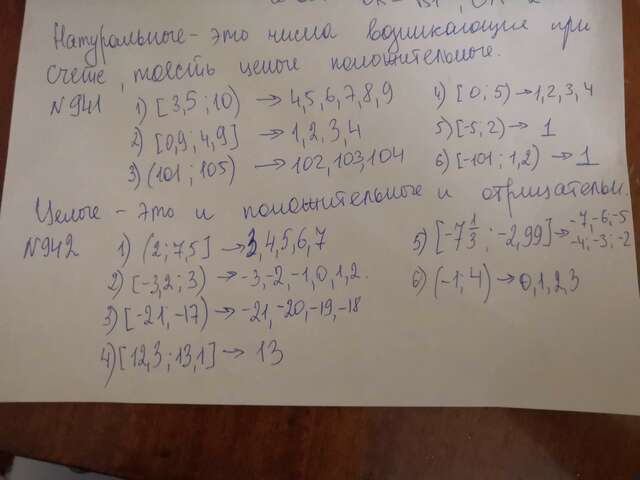 Натуральные - это числа возникающие при
счете, тоесть целые положительные.
N941 1) [3,5; 10) → 4,5,6,7,8,9 4) [0; 5) → 1,2,3,4
2) [0,9; 4,9] → 1,2,3,4 5) [-5; 2) → 1
3) (101; 105) → 102,103,104 6) [-101; 1,2) → 1
Целые - это и положительные и отрицательн.
N942 1) (2; 7,5] → 3,4,5,6,7 5) [-7 1/3; -2,99] → -7,-6,-5
-4,-3,-2
2) [-3,2; 3) → -3,-2,-1,0,1,2. 6) (-1; 4) → 0,1,2,3
3) [-21; -17) → -21,-20,-19,-18
4) [12,3; 13,1] → 13